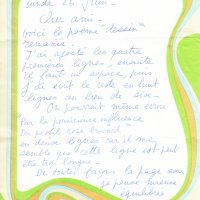 lundi 26 Juin -
Cher ami -
voici le poème "dessin"
remanié.
J'ai ajouté les quatre
premières lignes ; ensuite
il faut un espace, puis
j'ai écrit le reste en huit
lignes au lieu de six -
On pourrait même écrire
Par la puissance influence
Du petit rose
en deux lignes car il me
semble que cette ligne est peut
être trop longue -
De toutes façons la page sera
je pense mieux
équilibrée